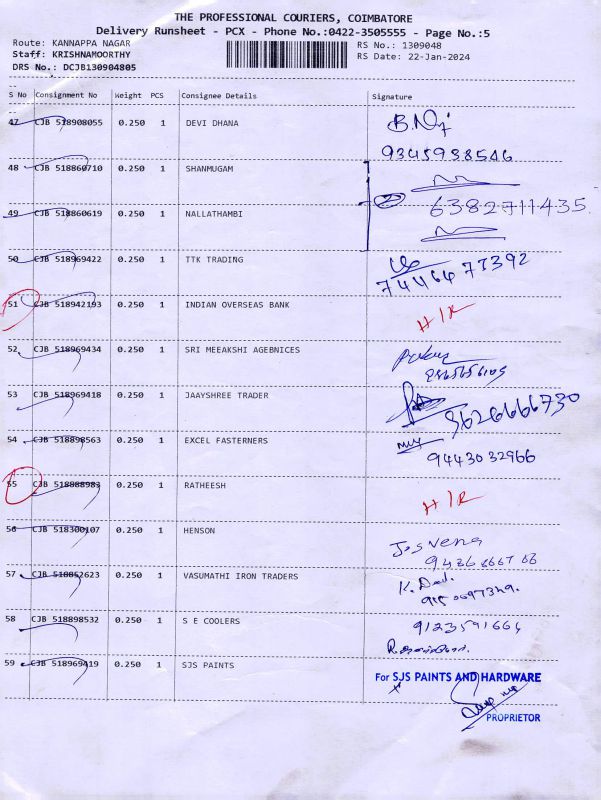 THE PROFESSIONAL COURIERS, COIMBATORE
Delivery Runsheet - PCX - Phone No.:0422-3505555 - Page No.:5
Route: KANNAPPA NAGAR RS No.: 1309048
Staff: KRISHNAMOORTHY RS Date: 22-Jan-2024
DRS No.: DCJB130904805
S No Consignment No Weight PCS Consignee Details Signature
47 CJB 518908055 0.250 1 DEVI DHANA
9345938546
48 CJB 518860710 0.250 1 SHANMUGAM
6382711435
49 CJB 518860619 0.250 1 NALLATHAMBI
50 CJB 518969422 0.250 1 TTK TRADING
7446477392
51 CJB 518942193 0.250 1 INDIAN OVERSEAS BANK H/R
52 CJB 518969434 0.250 1 SRI MEEAKSHI AGEBNICES
53 CJB 518969418 0.250 1 JAAYSHREE TRADER
9626666730
54 CJB 518898563 0.250 1 EXCEL FASTERNERS
9443032966
55 CJB 518988983 0.250 1 RATHEESH H/R
56 CJB 518300107 0.250 1 HENSON
57 CJB 518052623 0.250 1 VASUMATHI IRON TRADERS
58 CJB 518898532 0.250 1 S E COOLERS
9123591664
59 CJB 518969419 0.250 1 SJS PAINTS
For SJS PAINTS AND HARDWARE
PROPRIETOR